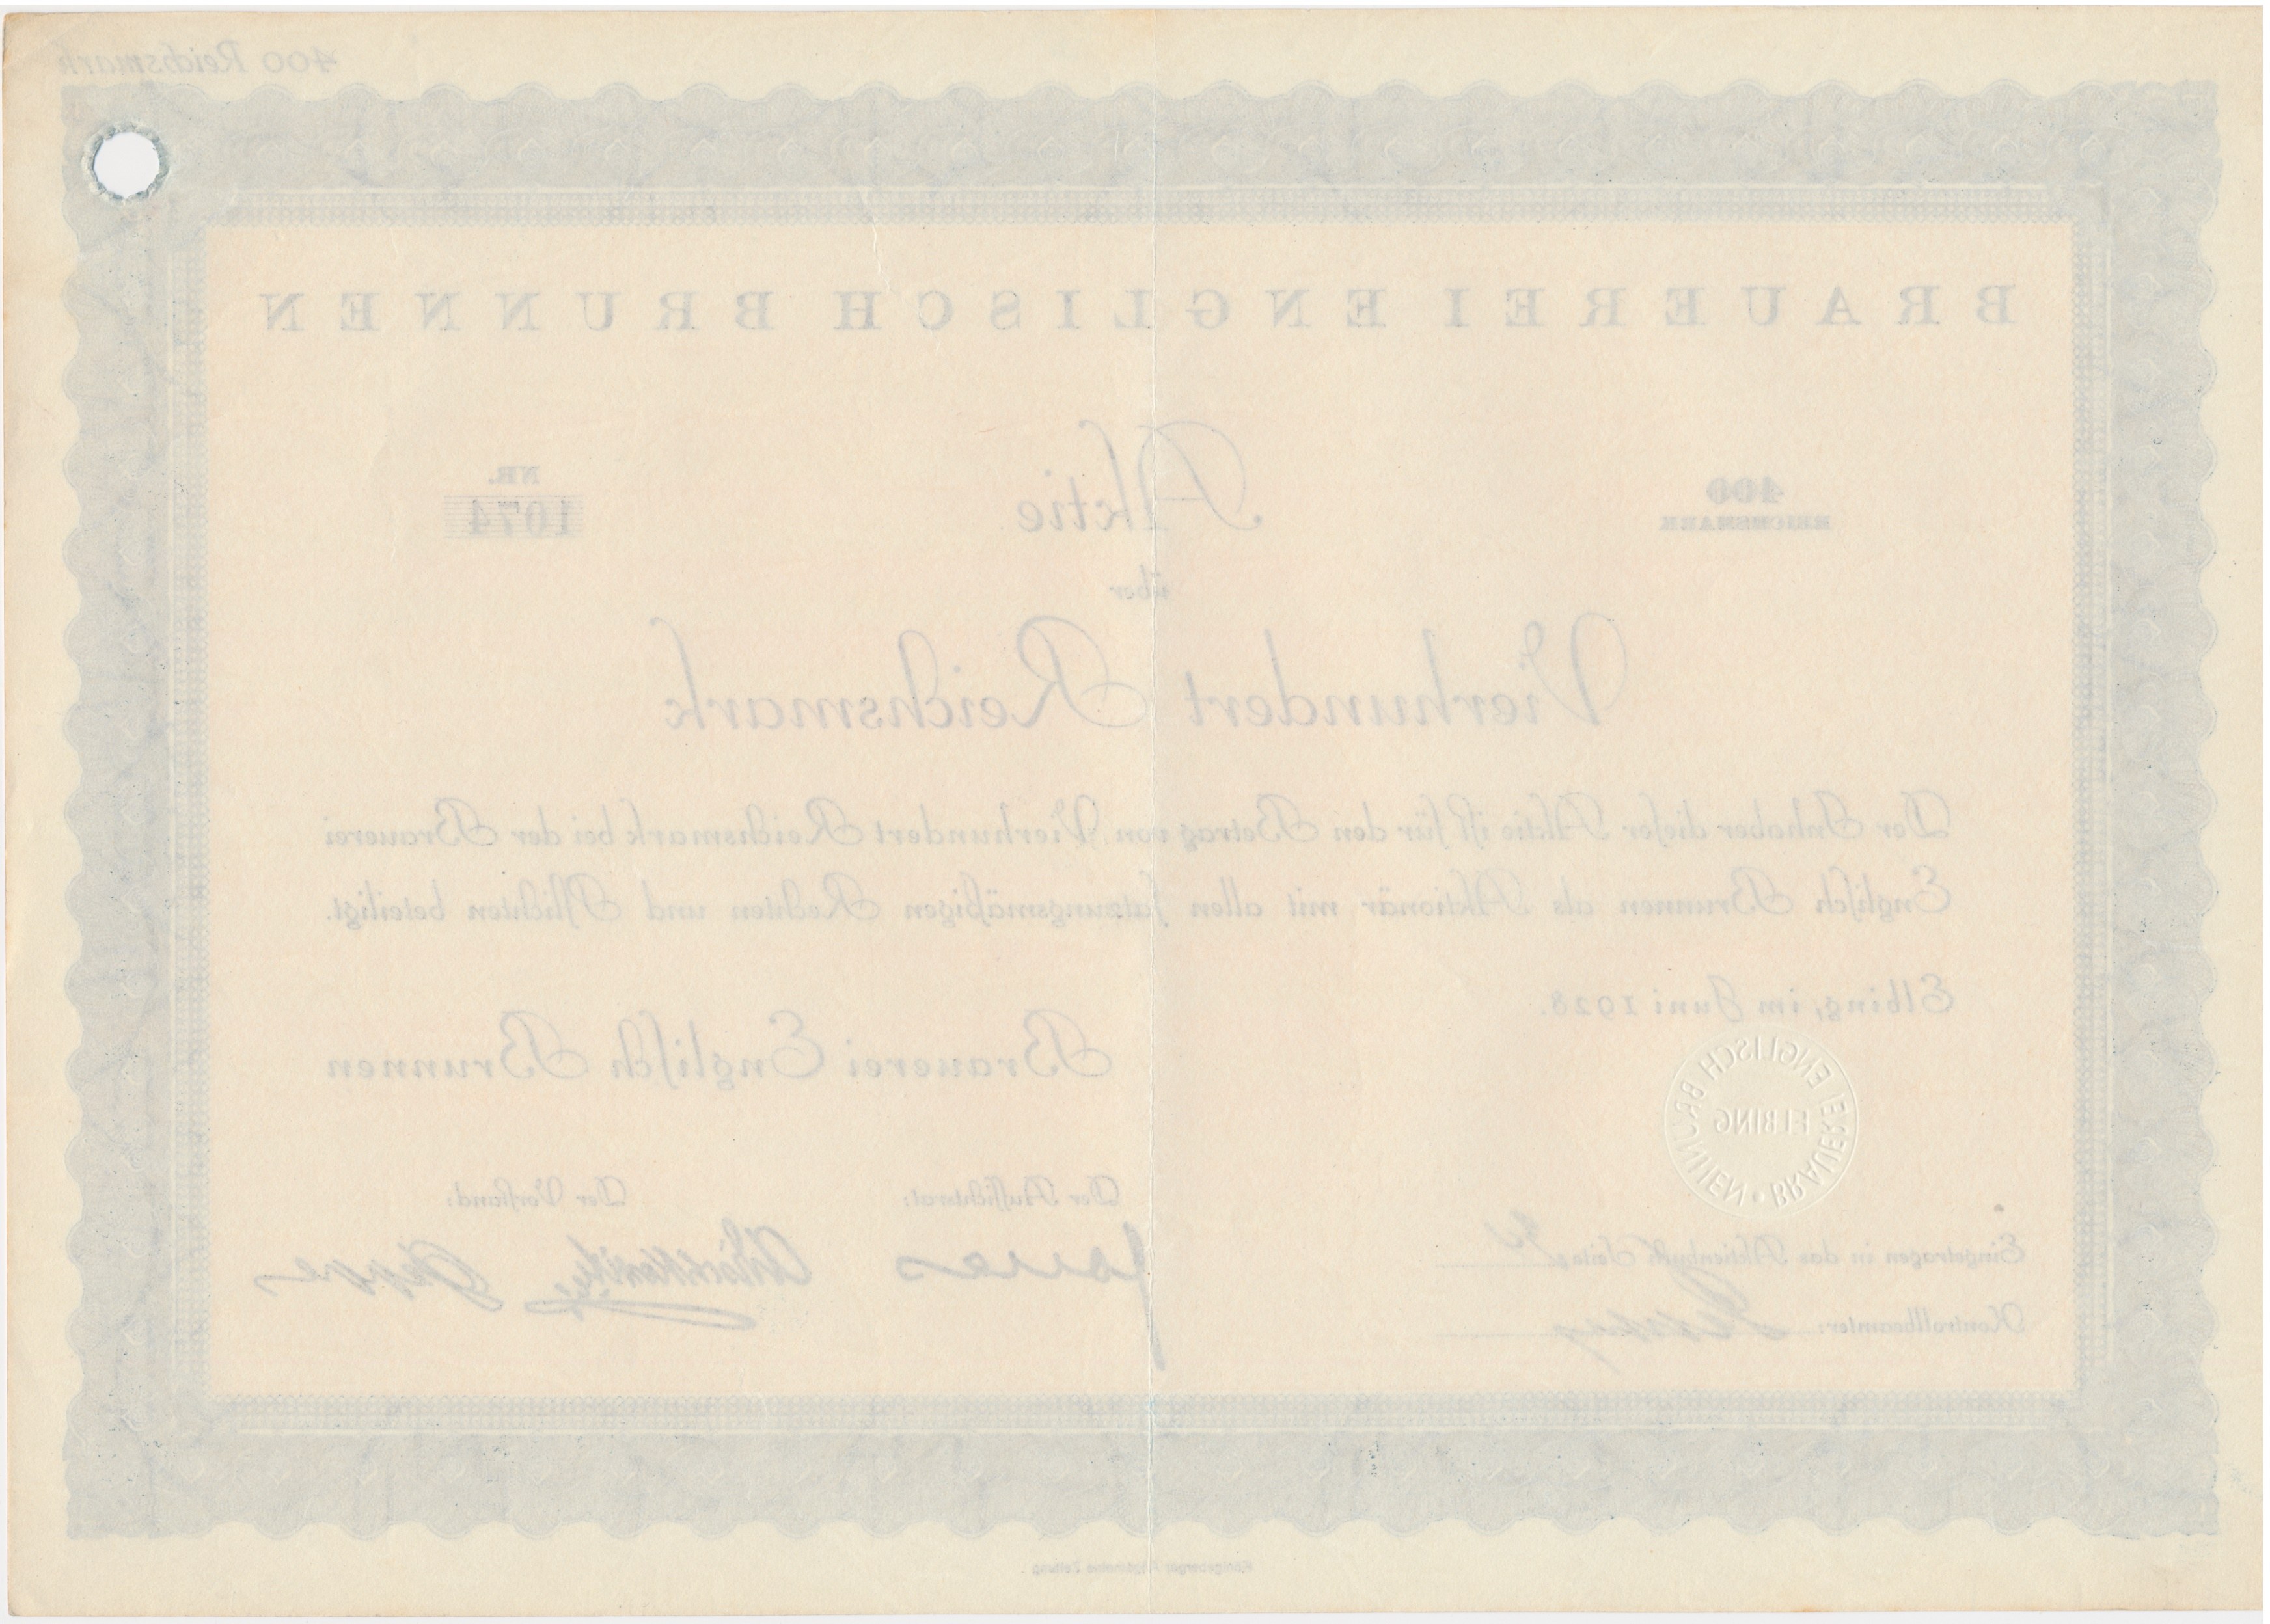 400 Reichsmark
BRAUEREI ENGLISCH BRUNNEN
400
REICHSMARK
Aktie
NR.
1074
über
Vierhundert Reichsmark
Der Inhaber dieſer Aktie iſt für den Betrag von Vierhundert Reichsmark bei der Brauerei
Engliſch Brunnen als Aktionär mit allen ſatzungsmäßigen Rechten und Pflichten beteiligt.
Elbing, im Juni 1928.
Brauerei Engliſch Brunnen
BRAUEREI ENGLISCH BRUNNEN •
ELBING
Der Aufſichtsrat:
Der Vorſtand:
Eingetragen in das Aktienbuch Seite
Kontrollbeamter:
Königsberger Allgemeine Zeitung